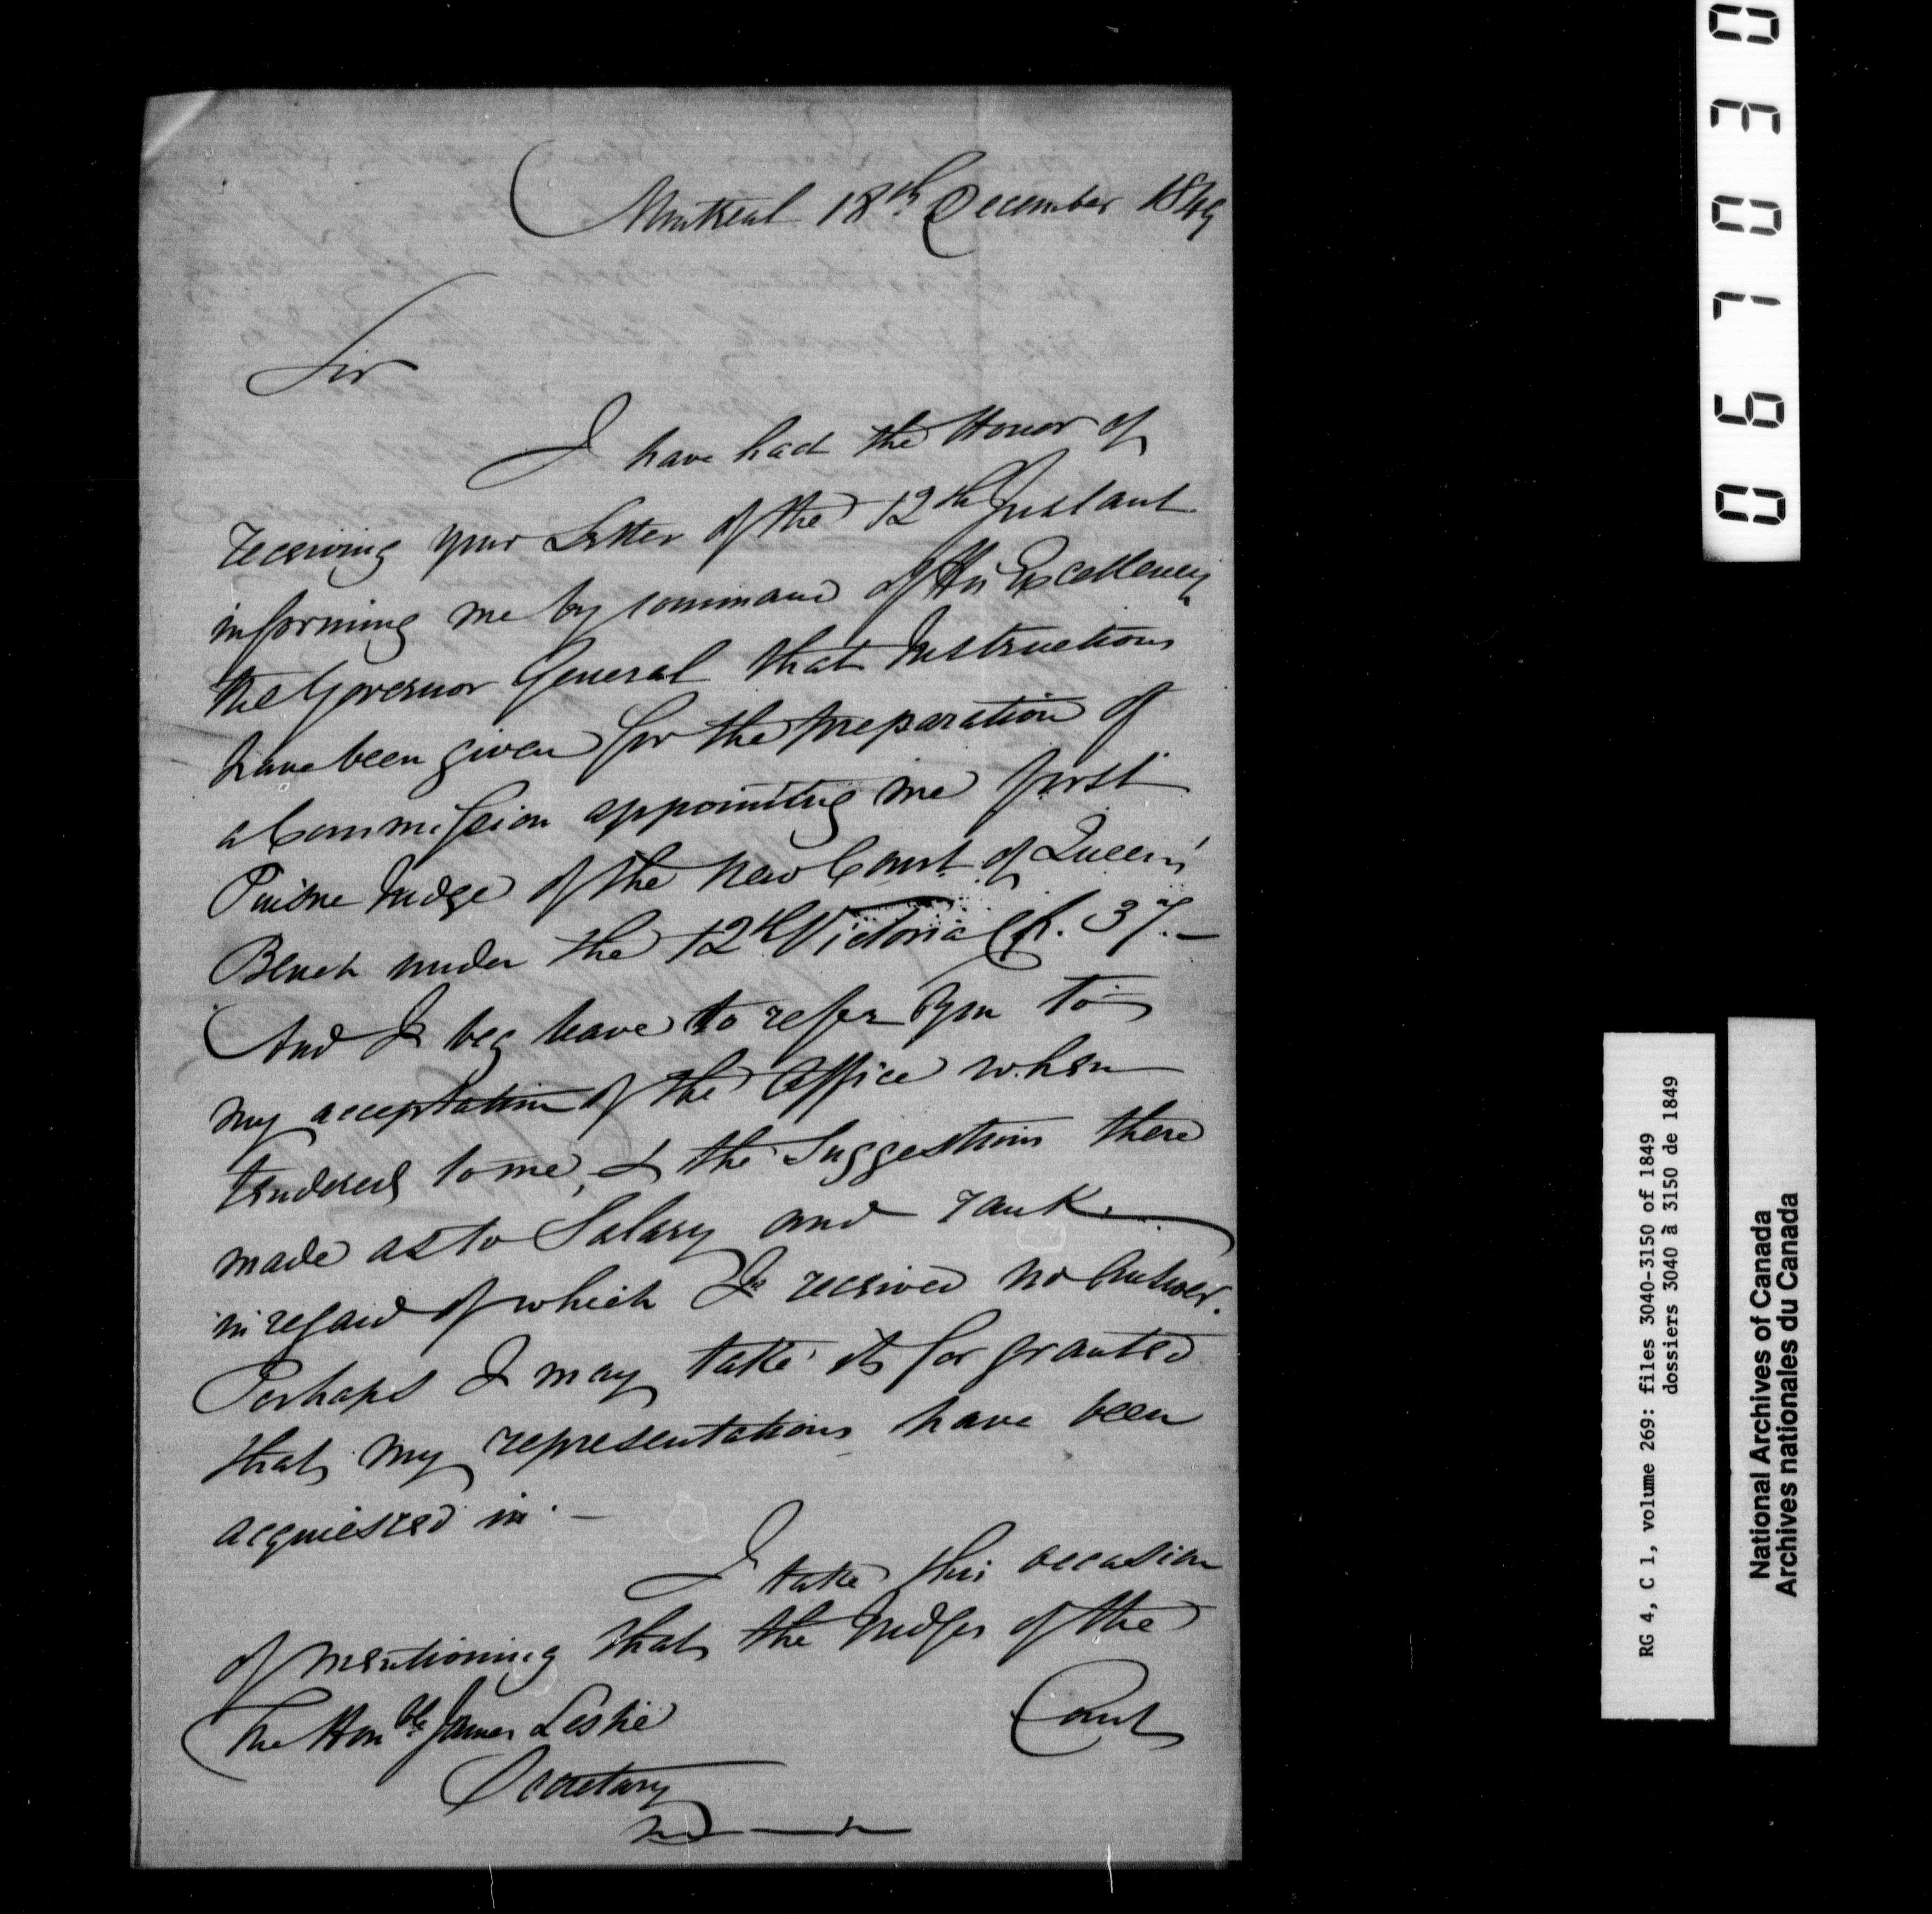 Montreal 18th December 1849
Sir
I have had the Honor of
receiving your Letter of the 12th Instant
informing me by command of His Excellency
the Governor General that Instructions
have been given for the preparation of
a Commission appointing me first
Puisne Judge of the new Court of Queen's
Bench under the 12th Victoria Ch. 37.—
And I beg leave to refer you to
my acceptation of the Office when
tendered to me, & the Suggestions there
made as to Salary and rank.
in regard of which I received no Answer.
Perhaps I may take it for granted
that my representations have been
acquiesced in. —
I take this occasion
of mentioning that the Judges of the
The Honble James Leslie
Court
Secretary
067030
RG 4, C 1, volume 269: files 3040-3150 of 1849
dossiers 3040 à 3150 de 1849
National Archives of Canada
Archives nationales du Canada